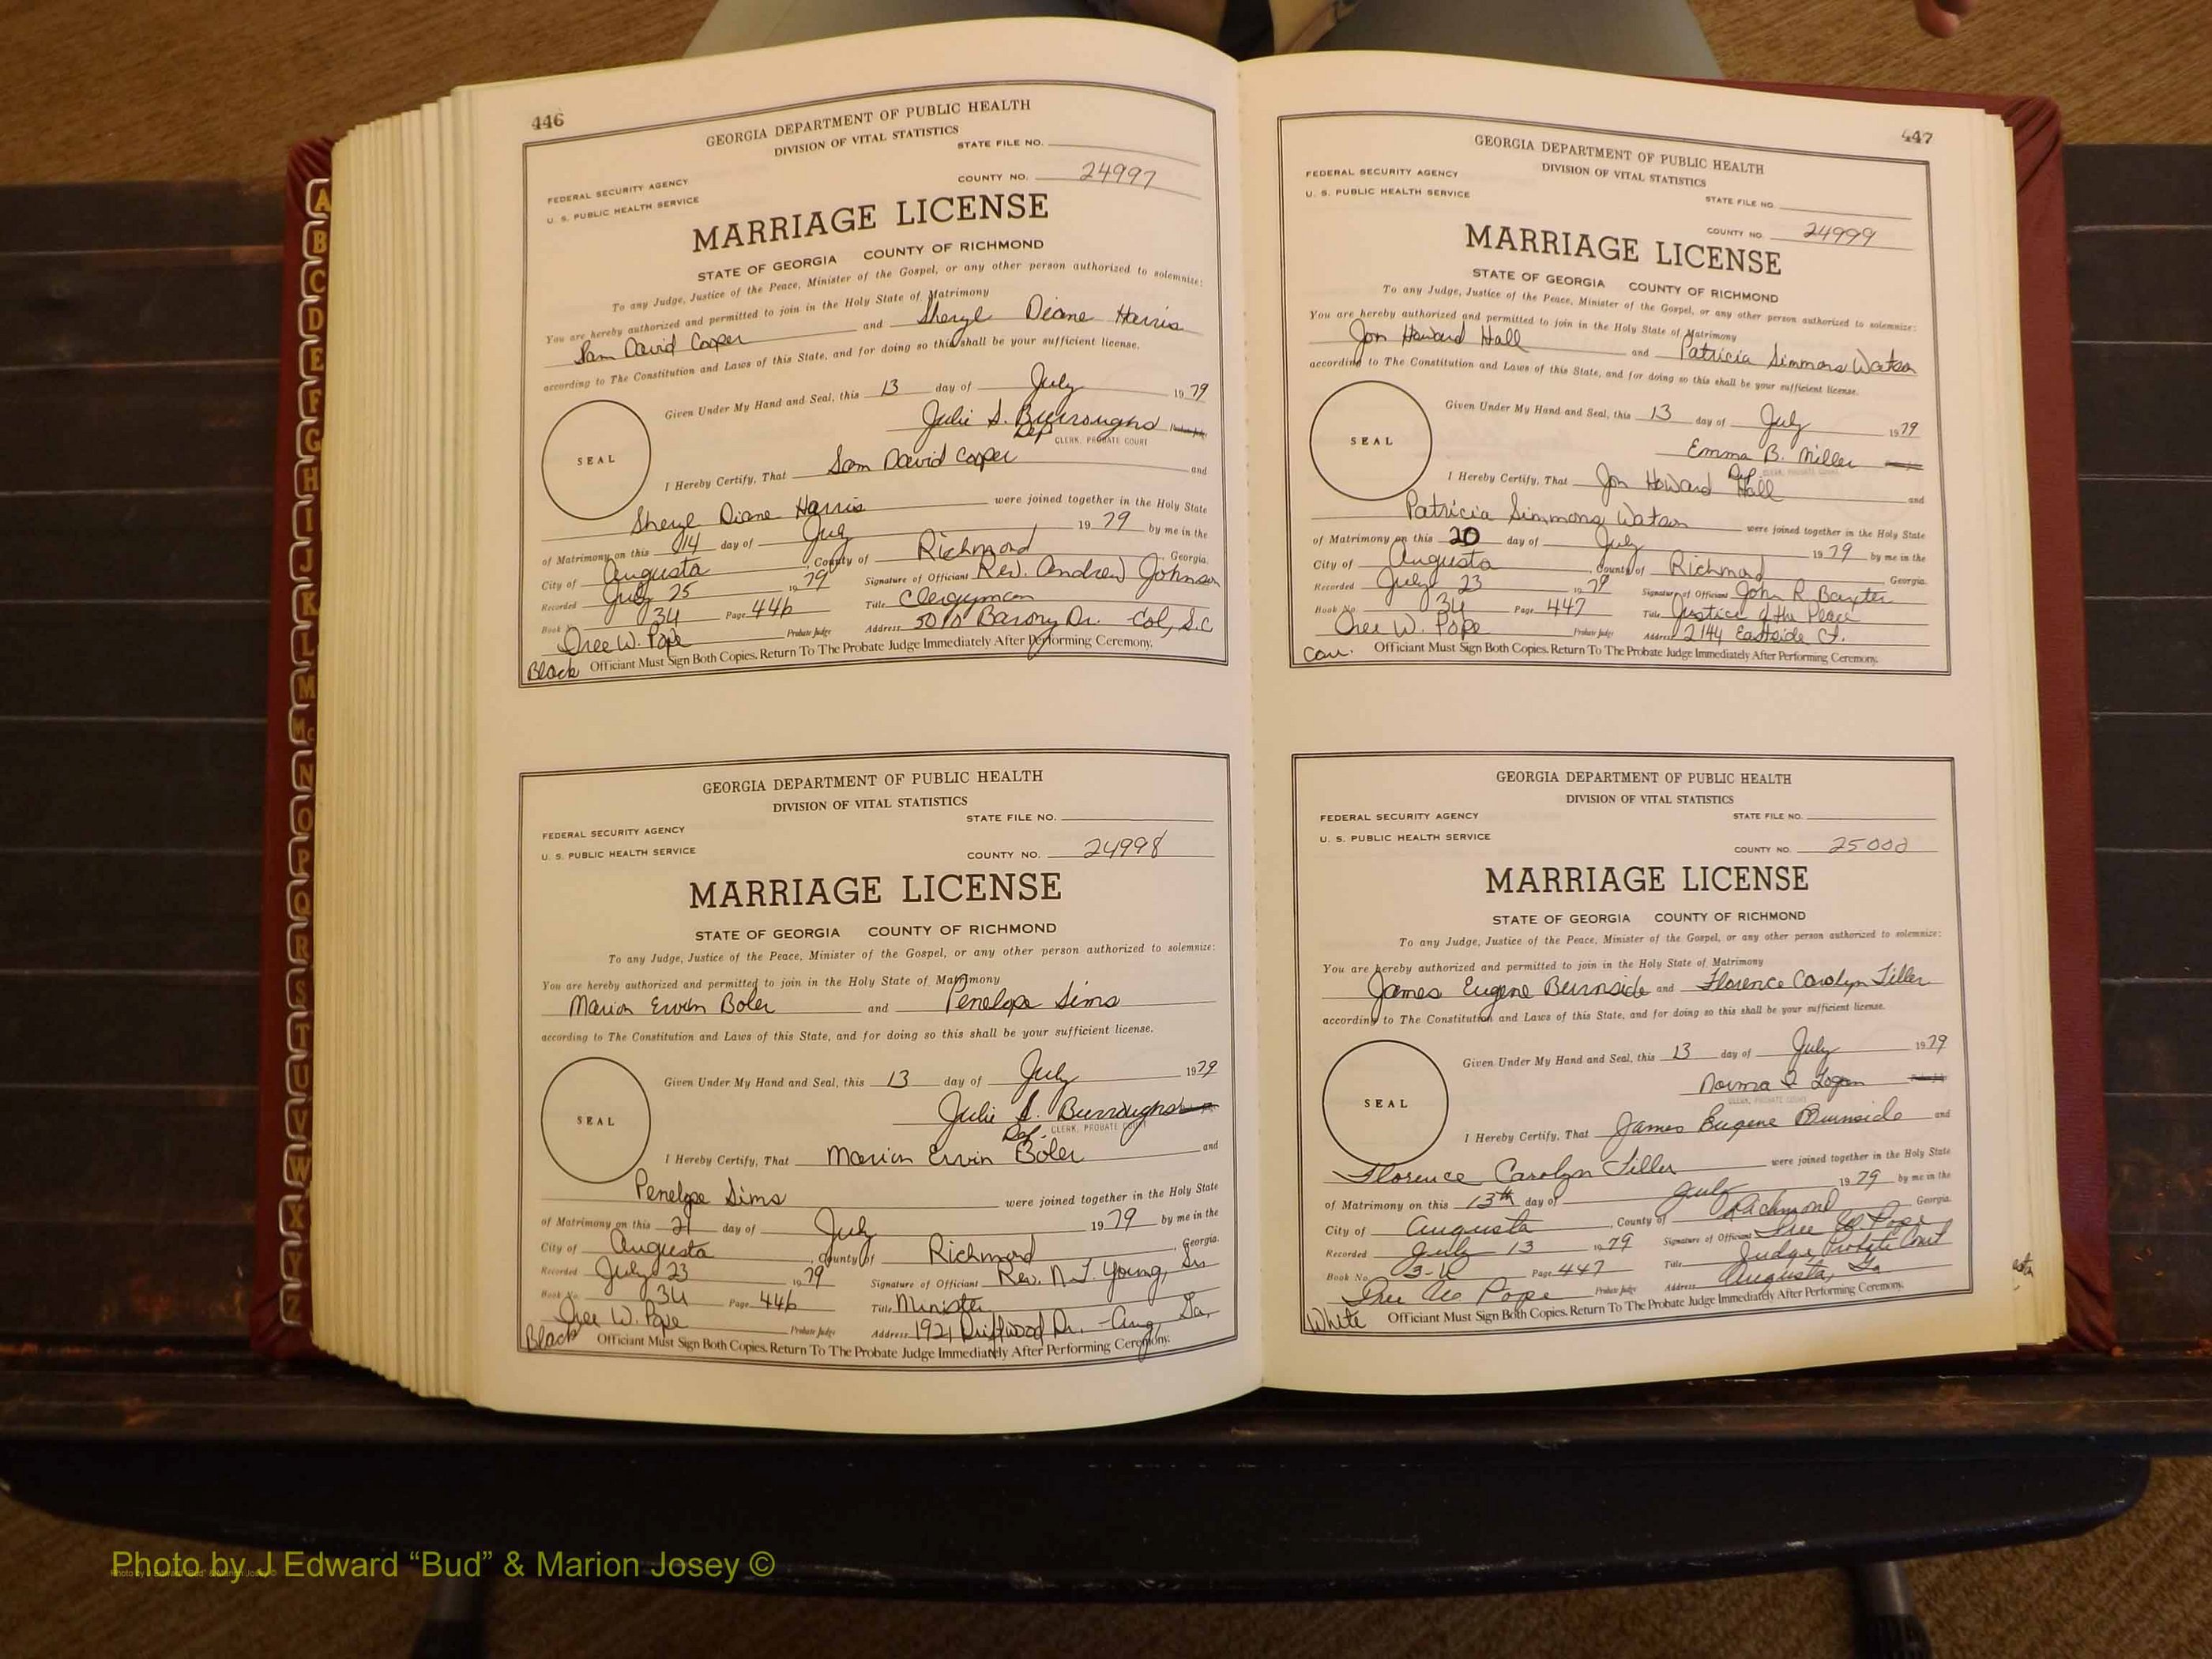 446
GEORGIA DEPARTMENT OF PUBLIC HEALTH
DIVISION OF VITAL STATISTICS
STATE FILE NO.
FEDERAL SECURITY AGENCY
COUNTY NO. 24997
U. S. PUBLIC HEALTH SERVICE
MARRIAGE LICENSE
STATE OF GEORGIA COUNTY OF RICHMOND
To any Judge, Justice of the Peace, Minister of the Gospel, or any other person authorized to solemnize:
You are hereby authorized and permitted to join in the Holy State of Matrimony
Sam David Cooper and Sheryl Diane Harris
according to The Constitution and Laws of this State, and for doing so this shall be your sufficient license.
Given Under My Hand and Seal, this 13 day of July 1979
Julie S. Burroughs
Dep CLERK, PROBATE COURT
SEAL
I Hereby Certify, That Sam David Cooper and
Sheryl Diane Harris were joined together in the Holy State
of Matrimony on this 14 day of July 1979 by me in the
City of Augusta, County of Richmond, Georgia.
Recorded July 25 1979 Signature of Officiant Rev. Andrew Johnson
Book No. 34 Page 446 Title Clergyman
Oree W. Pope Probate Judge Address 5010 Barony Dr. Col, S.C
Black Officiant Must Sign Both Copies. Return To The Probate Judge Immediately After Performing Ceremony.
GEORGIA DEPARTMENT OF PUBLIC HEALTH
DIVISION OF VITAL STATISTICS
STATE FILE NO.
FEDERAL SECURITY AGENCY
U. S. PUBLIC HEALTH SERVICE
COUNTY NO. 24998
MARRIAGE LICENSE
STATE OF GEORGIA COUNTY OF RICHMOND
To any Judge, Justice of the Peace, Minister of the Gospel, or any other person authorized to solemnize:
You are hereby authorized and permitted to join in the Holy State of Matrimony
Marion Ervin Boler and Penelope Sims
according to The Constitution and Laws of this State, and for doing so this shall be your sufficient license.
Given Under My Hand and Seal, this 13 day of July 1979
Julie S. Burroughs
Dep. CLERK, PROBATE COURT
SEAL
I Hereby Certify, That Marion Ervin Boler and
Penelope Sims were joined together in the Holy State
of Matrimony on this 21 day of July 1979 by me in the
City of Augusta, County of Richmond, Georgia.
Recorded July 23 1979 Signature of Officiant Rev. N. J. Young, Sr
Book No. 34 Page 446 Title Minister
Oree W. Pope Probate Judge Address 1921 Driftwood Dr. - Aug, Ga,
Black Officiant Must Sign Both Copies. Return To The Probate Judge Immediately After Performing Ceremony.
447
GEORGIA DEPARTMENT OF PUBLIC HEALTH
DIVISION OF VITAL STATISTICS
FEDERAL SECURITY AGENCY
U. S. PUBLIC HEALTH SERVICE
STATE FILE NO.
COUNTY NO. 24999
MARRIAGE LICENSE
STATE OF GEORGIA COUNTY OF RICHMOND
To any Judge, Justice of the Peace, Minister of the Gospel, or any other person authorized to solemnize:
You are hereby authorized and permitted to join in the Holy State of Matrimony
Jon Howard Hall and Patricia Simmons Watson
according to The Constitution and Laws of this State, and for doing so this shall be your sufficient license.
Given Under My Hand and Seal, this 13 day of July 1979
Emma B. Miller
Dep CLERK, PROBATE COURT
SEAL
I Hereby Certify, That Jon Howard Hall and
Patricia Simmons Watson were joined together in the Holy State
of Matrimony on this 20 day of July 1979 by me in the
City of Augusta, County of Richmond, Georgia.
Recorded July 23 1979 Signature of Officiant John R. Baxter
Book No. 34 Page 447 Title Justice of the Peace
Oree W. Pope Probate Judge Address 2144 Eastside Ct.
Cau. Officiant Must Sign Both Copies. Return To The Probate Judge Immediately After Performing Ceremony.
GEORGIA DEPARTMENT OF PUBLIC HEALTH
DIVISION OF VITAL STATISTICS
FEDERAL SECURITY AGENCY
STATE FILE NO.
U. S. PUBLIC HEALTH SERVICE
COUNTY NO. 25000
MARRIAGE LICENSE
STATE OF GEORGIA COUNTY OF RICHMOND
To any Judge, Justice of the Peace, Minister of the Gospel, or any other person authorized to solemnize:
You are hereby authorized and permitted to join in the Holy State of Matrimony
James Eugene Burnside and Florence Carolyn Tiller
according to The Constitution and Laws of this State, and for doing so this shall be your sufficient license.
Given Under My Hand and Seal, this 13 day of July 1979
Norma Logan
CLERK, PROBATE COURT
SEAL
I Hereby Certify, That James Eugene Burnside and
Florence Carolyn Tiller were joined together in the Holy State
of Matrimony on this 13th day of July 1979 by me in the
City of Augusta, County of Richmond, Georgia.
Recorded July 13 1979 Signature of Officiant Oree W. Pope
Book No. Page 447 Title Judge Probate Court
Oree W Pope Probate Judge Address Augusta, Ga
White Officiant Must Sign Both Copies. Return To The Probate Judge Immediately After Performing Ceremony.
A
B
C
D
E
F
G
H
I
J
K
L
M
Mc
N
O
P
Q
R
S
T
U
V
W
X
Y
Z
Photo by J Edward “Bud” & Marion Josey ©